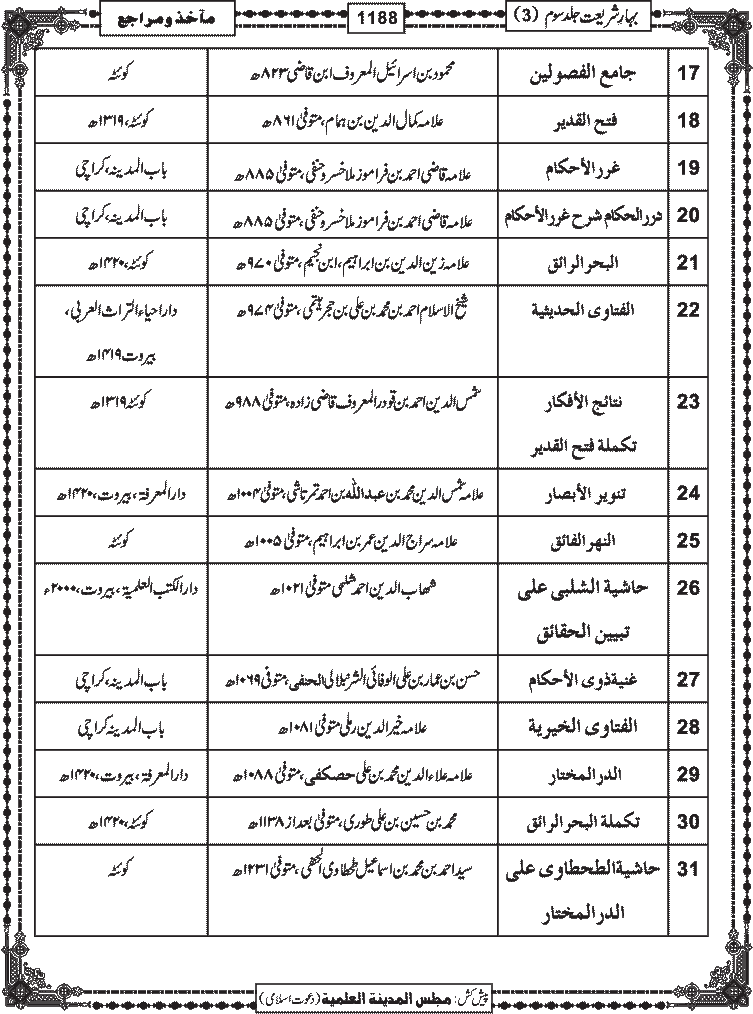 بہارِ شریعت جلد سوم (3) 1188 مآخذ و مراجع
17 جامع الفصولين محمود بن اسرائیل المعروف ابن قاضی ۸۲۳ھ کوئٹہ
18 فتح القدير علامہ کمال الدین بن ہمام، متوفیٰ ۸۶۱ھ کوئٹہ، ۱۳۱۹ھ
19 غرر الأحكام علامہ قاضی احمد بن فراموز ملا خسرو حنفی، متوفیٰ ۸۸۵ھ باب المدینہ، کراچی
20 درر الحكام شرح غرر الأحكام علامہ قاضی احمد بن فراموز ملا خسرو حنفی، متوفیٰ ۸۸۵ھ باب المدینہ، کراچی
21 البحر الرائق علامہ زین الدین بن ابراہیم، ابن نجیم، متوفیٰ ۹۷۰ھ کوئٹہ، ۱۴۲۰ھ
22 الفتاوى الحديثية شیخ الاسلام احمد بن محمد بن علی بن حجر ہیتمی، متوفیٰ ۹۷۴ھ دار احیاء التراث العربی،
بیروت ۱۴۱۹ھ
23 نتائج الأفكار شمس الدین احمد بن قودر المعروف قاضی زادہ، متوفیٰ ۹۸۸ھ کوئٹہ ۱۳۱۹ھ
تكملة فتح القدير
24 تنوير الأبصار علامہ شمس الدین محمد بن عبداللہ بن احمد تمرتاشی، متوفیٰ ۱۰۰۴ھ دار المعرفۃ، بیروت، ۱۴۲۰ھ
25 النهر الفائق علامہ سراج الدین عمر بن ابراہیم، متوفیٰ ۱۰۰۵ھ کوئٹہ
26 حاشية الشلبى على شہاب الدین احمد شلبی متوفیٰ ۱۰۲۱ھ دار الکتب العلمیۃ، بیروت، ۲۰۰۰ء
تبيين الحقائق
27 غنية ذوى الأحكام حسن بن عمار بن علی الوفائی الشرنبلالی الحنفی، متوفیٰ ۱۰۶۹ھ باب المدینہ، کراچی
28 الفتاوى الخيرية علامہ خیر الدین رملی متوفیٰ ۱۰۸۱ھ باب المدینہ کراچی
29 الدر المختار علامہ علاء الدین محمد بن علی حصکفی، متوفیٰ ۱۰۸۸ھ دار المعرفۃ، بیروت، ۱۴۲۰ھ
30 تكملة البحر الرائق محمد بن حسین بن علی طوری، متوفیٰ بعد از ۱۱۳۸ھ کوئٹہ، ۱۴۲۰ھ
31 حاشية الطحطاوى على سید احمد بن محمد بن اسماعیل طحطاوی الحنفی، متوفیٰ ۱۲۳۱ھ کوئٹہ
الدر المختار
پیش کش: مجلس المدينة العلمية (دعوت اسلامی)